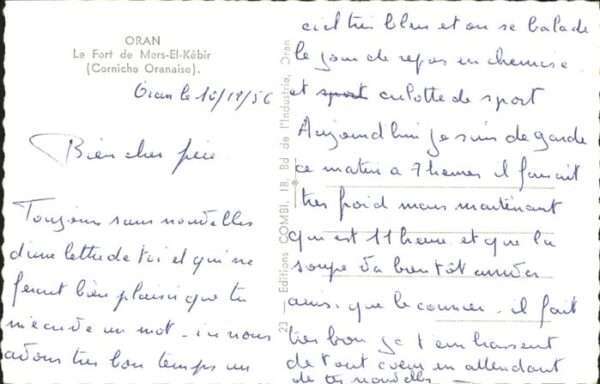 ORAN
Le Fort de Mers-El-Kébir
(Corniche Oranaise).
Oran le 16/12/56
Bien cher
Toujours sans nouvelles
d'une lettre de toi et qui me
ferait bien plaisir que tu
un mot. ici nous
avons très bon temps un
23 _ Editions COMBI, 18, Bd de l'Industrie, Oran
ciel très bleu et on se balade
le jour de repos en chemise
et sport culotte de sport
Aujourd'hui je suis de garde
ce matin a 7 heures il faisait
tres froid mais maintenant
qui est 11 heure et que la
soupe va bientôt arriver
ainsi que le courrier. il fait
tres bon je t'embrassent
de tout coeur en attendant
de tes nouvelles